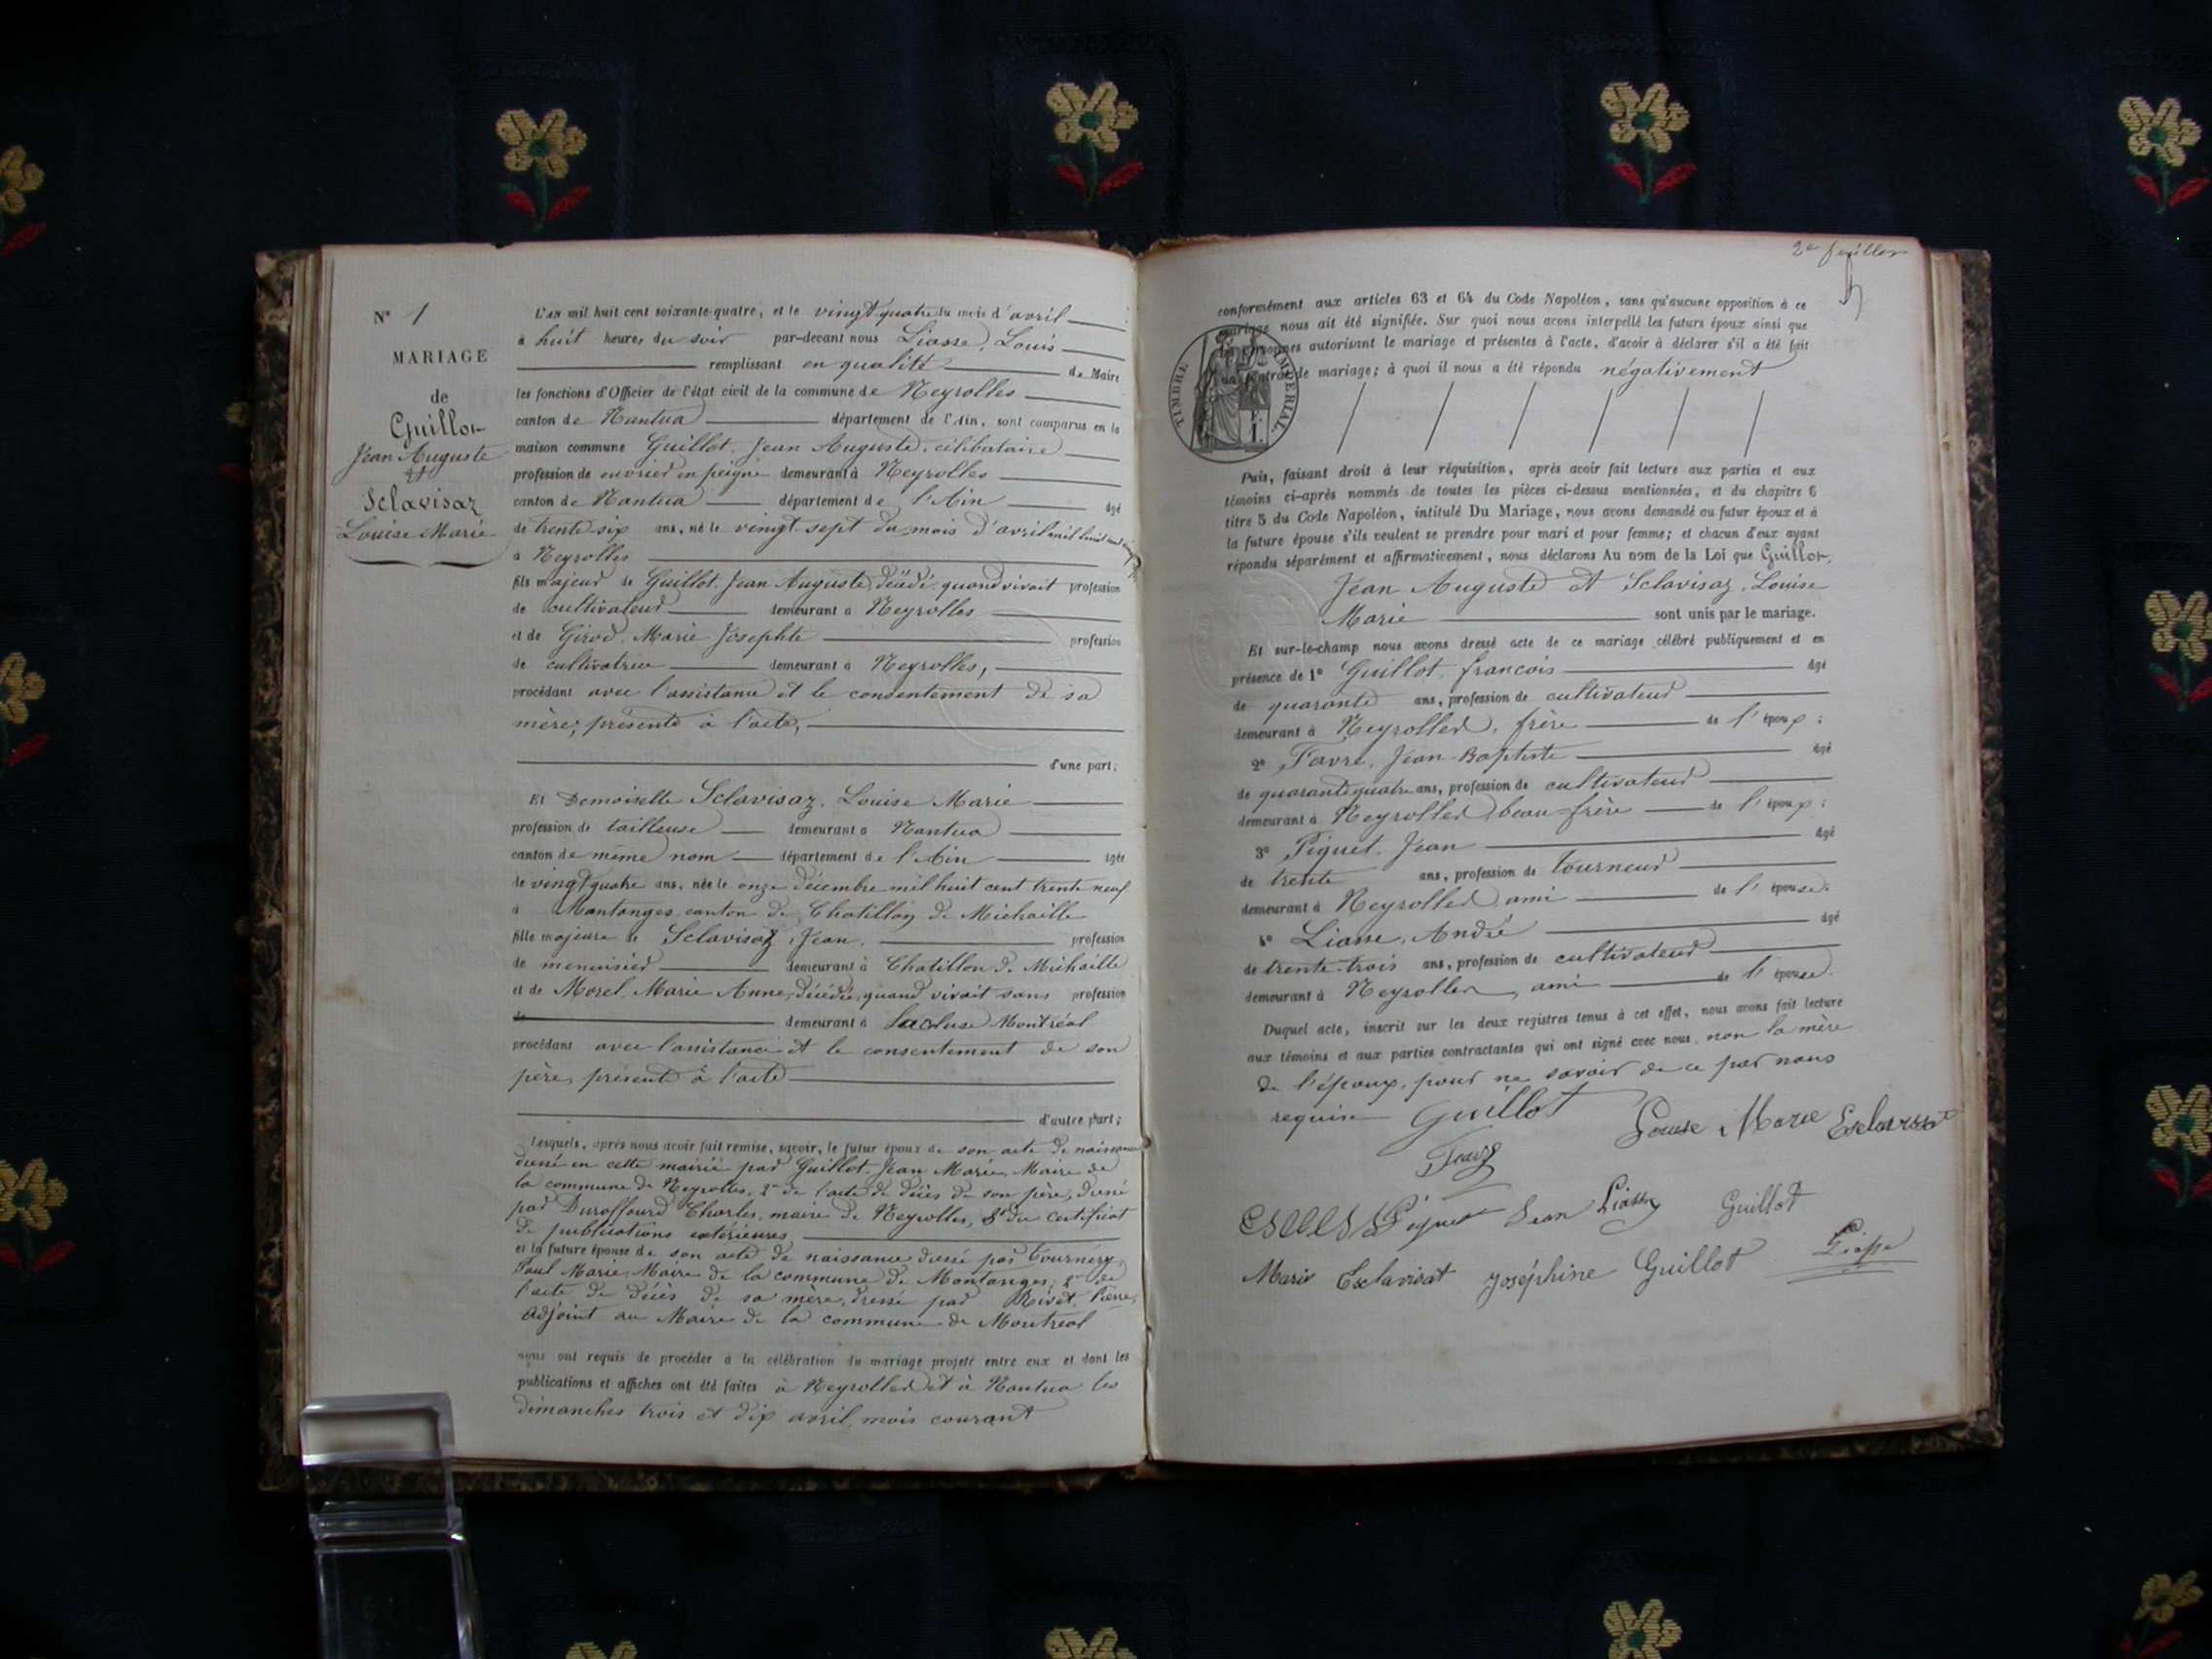 N° 1
MARIAGE
de
Guillot
Jean Auguste
et
Sclavisaz
Louise Marie
L'an mil huit cent soixante-quatre, et le vingt quatre du mois d'avril
à huit heures du soir par-devant nous Liasse, Louis
remplissant en qualité de Maire
les fonctions d'Officier de l'état civil de la commune de Neyrolles
canton de Nantua département de l'Ain, sont comparus en la
maison commune Guillot, Jean Auguste, célibataire
profession de ouvrier en peigne demeurant à Neyrolles
canton de Nantua département de l'Ain âgé
de trente six ans, né le vingt sept du mois d'avril mil huit cent
à Neyrolles
fils majeur de Guillot, Jean Auguste, décédé, quand vivait profession
de cultivateur demeurant à Neyrolles
et de Girod, Marie Josephte profession
de cultivatrice demeurant à Neyrolles,
procédant avec l'assistance et le consentement de sa
mère, présente à l'acte,
d'une part;
Et Demoiselle Sclavisaz, Louise Marie
profession de tailleuse demeurant à Nantua
canton de même nom département de l'Ain âgée
de vingt quatre ans, née le onze décembre mil huit cent trente neuf
à Montanges, canton de Chatillon de Michaille
fille majeure de Sclavisaz, Jean, profession
de menuisier demeurant à Chatillon de Michaille
et de Morel, Marie Anne, décédée, quand vivait sans profession
de demeurant à Lacluse Montréal
procédant avec l'assistance et le consentement de son
père, présent à l'acte
d'autre part;
Lesquels, après nous avoir fait remise, savoir, le futur époux de son acte de naissance
dressé en cette mairie par Guillot, Jean Marie, Maire de
la commune de Neyrolles, 2° de l'acte de décès de son père, dressé
par Duraffourd Charles, maire de Neyrolles, 3° du certificat
de publications extérieures
et la future épouse de son acte de naissance dressé par Tournéry,
Paul Marie, Maire de la commune de Montanges; 2° de
l'acte de décès de sa mère, dressé par Rivet, Pierre,
adjoint au Maire de la commune de Montréal
nous ont requis de procéder à la célébration du mariage projeté entre eux et dont les
publications et affiches ont été faites à Neyrolles et à Nantua les
dimanches trois et dix avril, mois courant
2e feuillet
conformément aux articles 63 et 64 du Code Napoléon, sans qu'aucune opposition à ce
mariage nous ait été signifiée. Sur quoi nous avons interpellé les futurs époux ainsi que
les personnes autorisant le mariage et présentes à l'acte, d'avoir à déclarer s'il a été fait
un contrat de mariage; à quoi il nous a été répondu négativement
TIMBRE IMPÉRIAL
1 F.
Puis, faisant droit à leur réquisition, après avoir fait lecture aux parties et aux
témoins ci-après nommés de toutes les pièces ci-dessus mentionnées, et du chapitre 6
titre 5 du Code Napoléon, intitulé Du Mariage, nous avons demandé au futur époux et à
la future épouse s'ils veulent se prendre pour mari et pour femme; et chacun d'eux ayant
répondu séparément et affirmativement, nous déclarons Au nom de la Loi que Guillot,
Jean Auguste et Sclavisaz, Louise
Marie sont unis par le mariage.
Et sur-le-champ nous avons dressé acte de ce mariage célébré publiquement et en
présence de 1° Guillot, francois âgé
de quarante ans, profession de cultivateur
demeurant à Neyrolles, frère de l'époux;
2° Favre, Jean-Baptiste âgé
de quarante quatre ans, profession de cultivateur
demeurant à Neyrolles, beau-frère de l'époux;
3° Piquet, Jean âgé
de trente ans, profession de tourneur
demeurant à Neyrolles, ami de l'épouse;
4° Liasse, André âgé
de trente-trois ans, profession de cultivateur
demeurant à Neyrolles, ami de l'épouse.
Duquel acte, inscrit sur les deux registres tenus à cet effet, nous avons fait lecture
aux témoins et aux parties contractantes qui ont signé avec nous, non la mère
de l'époux, pour ne savoir de ce par nous
requise Guillot Louise Marie
Piquet Jean Liasse Guillot
Marie Esclavisat Joséphine Guillot Liasse